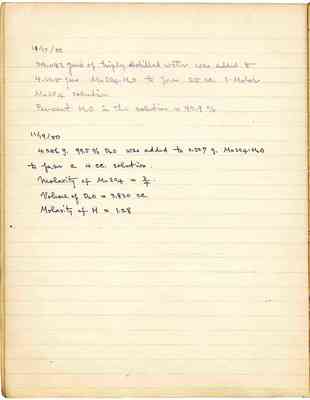 gms of triply distilled water was added to
4.225 gms MnSO4.H2O to form 25 cc 1-Molar
MnSO4 solution
Percent H2O in the solution = 97.9 %
11/19/50
4.206 g. 99.5 % D2O was added to g. MnSO4.H2O
to form a 4 cc. solution
Molarity of MnSO4 =
Volume of D2O = 3.820 cc
Molarity of H = 1.28